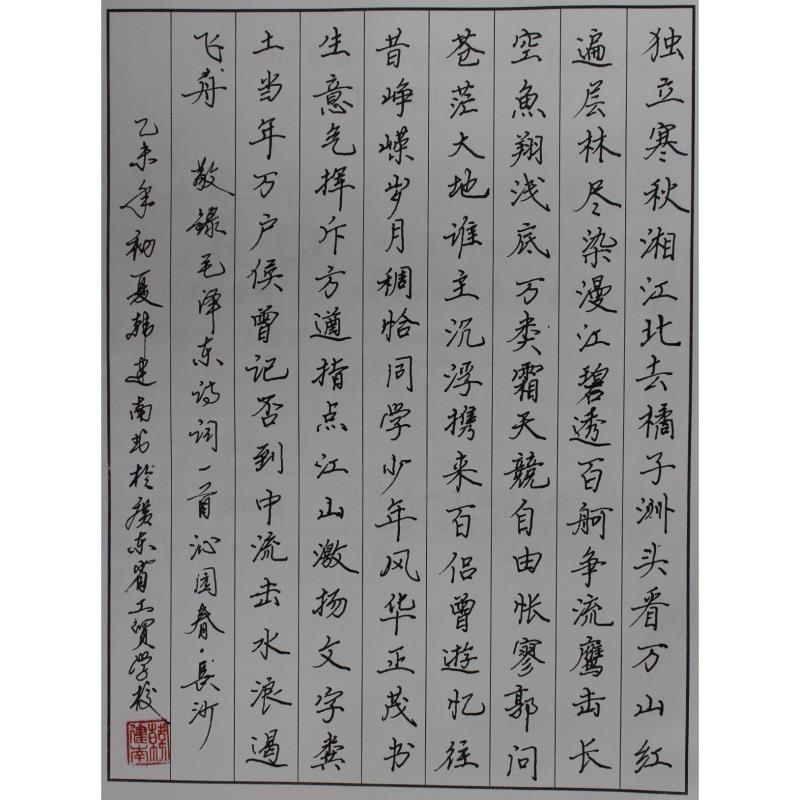 独立寒秋湘江北去橘子洲头看万山红
遍层林尽染漫江碧透百舸争流鹰击长
空魚翔浅底万类霜天競自由怅寥郭问
苍茫大地谁主沉浮携来百侣曾遊忆往
昔峥嵘岁月稠恰同学少年风华正茂书
生意气挥斥方遒指点江山激扬文字粪
土当年万户侯曾记否到中流击水浪遏
飞舟 敬録毛泽东诗词一首沁园春·長沙
乙未年初夏韩建南书於廣东省工贸学校